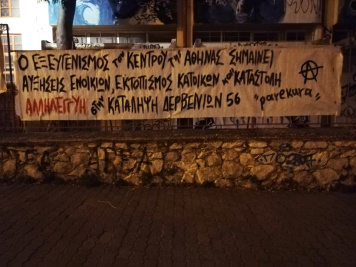 Ο ΕΞΕΥΓΕΝΙΣΜΟΣ του ΚΕΝΤΡΟΥ της ΑΘΗΝΑΣ ΣΗΜΑΙΝΕΙ
ΑΥΞΗΣΕΙΣ ΕΝΟΙΚΙΩΝ, ΕΚΤΟΠΙΣΜΟΣ ΚΑΤΟΙΚΩΝ και ΚΑΤΑΣΤΟΛΗ
ΑΛΛΗΛΕΓΓΥΗ στην ΚΑΤΑΛΗΨΗ ΔΕΡΒΕΝΙΩΝ 56
"parekura"